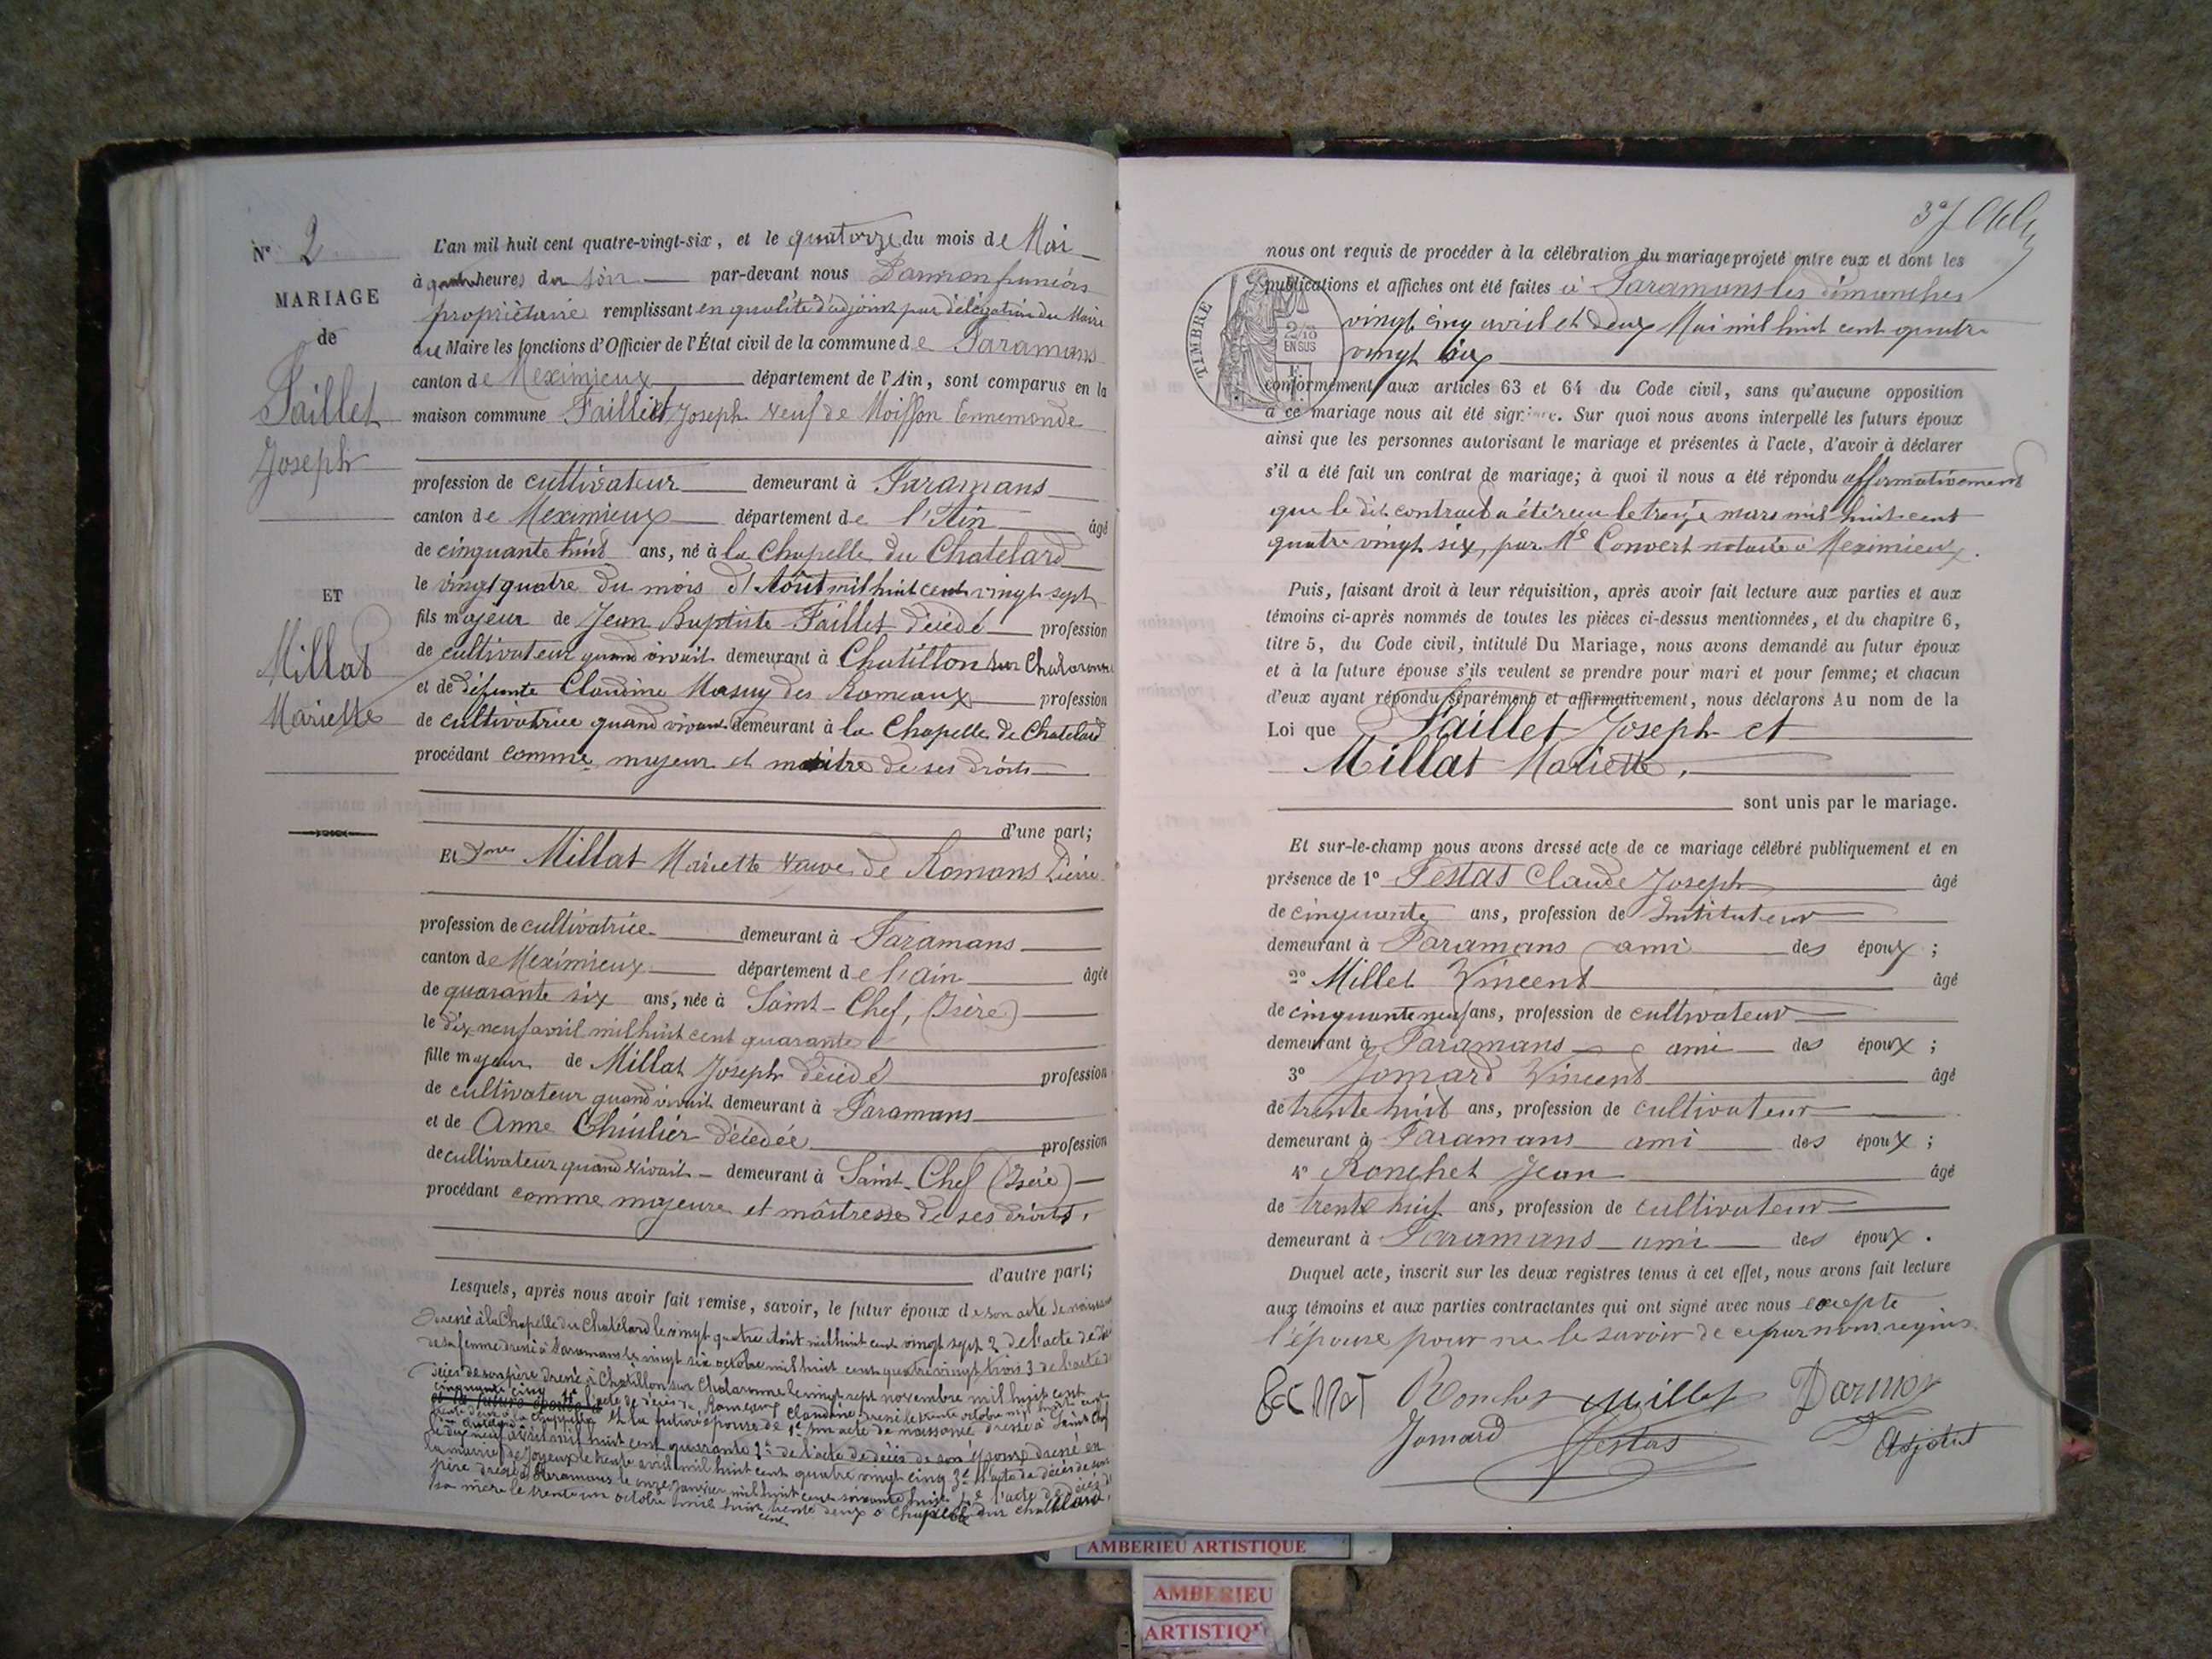 N° 2
MARIAGE
de
Faillet
Joseph
ET
Millat
Mariette
L'an mil huit cent quatre-vingt-six, et le quatorze du mois de Mai
à quatre heures du soir par-devant nous
propriétaire remplissant en qualité d'adjoint par délégation du Maire
du Maire les fonctions d'Officier de l'État civil de la commune de Faramans
canton de Meximieux département de l'Ain, sont comparus en la
maison commune Faillet Joseph veuf de Moisson Ennemonde
profession de cultivateur demeurant à Faramans
canton de Meximieux département de l'Ain âgé
de cinquante huit ans, né à la Chapelle du Chatelard
le vingt quatre du mois d'Août mil huit cent vingt sept
fils majeur de Jean Baptiste Faillet décédé profession
de cultivateur quand vivait demeurant à Chatillon sur Chalaronne
et de défunte Claudine des Romeaux profession
de cultivatrice quand vivant demeurant à la Chapelle de Chatelard
procédant comme majeur et maître de ses droits
d'une part;
Et Dme Millat Mariette veuve de Romans Pierre
profession de cultivatrice demeurant à Faramans
canton de Meximieux département de l'ain âgée
de quarante six ans, née à Saint-Chef, (Isère)
le dix neuf avril mil huit cent quarante
fille majeur de Millat Joseph décédé profession
de cultivateur quand vivait demeurant à Faramans
et de Anne décédée profession
de cultivateur quand vivait demeurant à Saint-Chef (Isère)
procédant comme majeure et maîtresse de ses droits.
d'autre part;
Lesquels, après nous avoir fait remise, savoir, le futur époux de son acte de naissance
dressé à la Chapelle du Chatelard le vingt quatre Août mil huit cent vingt sept 2 de l'acte de décès
de sa femme dressé à Faramans le vingt six octobre mil huit cent quatre vingt trois 3 de l'acte de
décès de son père dressé à Chatillon sur Chalaronne le vingt sept novembre mil huit cent
cinquante cinq
l'acte de décès de Claudine dressé le trente octobre mil huit cent
trente deux à la Chappelle et la future épouse de 1° son acte de naissance dressé à Saint Chef
le dix neuf avril mil huit cent quarante 2° de l'acte de décès de son époux dressé en
la mairie de Joyeux le trente avril mil huit cent quatre vingt cinq 3° l'acte de décès de son
père dressé à Faramans le onze janvier mil huit cent soixante l'acte de décès de
sa mère le trente un octobre mil huit cent trente deux à Chapelle du Chatelard.
37
nous ont requis de procéder à la célébration du mariage projeté entre eux et dont les
publications et affiches ont été faites à Faramans les dimanches
vingt cinq avril et deux Mai mil huit cent quatre
vingt six
TIMBRE
2/10
EN SUS
conformément aux articles 63 et 64 du Code civil, sans qu'aucune opposition
à ce mariage nous ait été signifiée. Sur quoi nous avons interpellé les futurs époux
ainsi que les personnes autorisant le mariage et présentes à l'acte, d'avoir à déclarer
s'il a été fait un contrat de mariage; à quoi il nous a été répondu affirmativement
que le dit contract a été reçu le treize mars mil huit cent
quatre vingt six, par Me Convert notaire à Meximieux.
Puis, faisant droit à leur réquisition, après avoir fait lecture aux parties et aux
témoins ci-après nommés de toutes les pièces ci-dessus mentionnées, et du chapitre 6,
titre 5, du Code civil, intitulé Du Mariage, nous avons demandé au futur époux
et à la future épouse s'ils veulent se prendre pour mari et pour femme; et chacun
d'eux ayant répondu séparément et affirmativement, nous déclarons Au nom de la
Loi que Faillet Joseph et
Millat Mariette.
sont unis par le mariage.
Et sur-le-champ nous avons dressé acte de ce mariage célébré publiquement et en
présence de 1° Festas Claude Joseph âgé
de cinquante ans, profession de Instituteur
demeurant à Faramans ami des époux;
2° Millet Vincent âgé
de cinquante neuf ans, profession de cultivateur
demeurant à Faramans ami des époux;
3° Jomard Vincent âgé
de trente huit ans, profession de cultivateur
demeurant à Faramans ami des époux;
4° Ronchet Jean âgé
de trente huit ans, profession de cultivateur
demeurant à Faramans ami des époux.
Duquel acte, inscrit sur les deux registres tenus à cet effet, nous avons fait lecture
aux témoins et aux parties contractantes qui ont signé avec nous excepté
l'épouse pour ne le savoir de ce par nous requis
Ronchet Millet
Jomard Festas Adjoint
AMBERIEU ARTISTIQUE
AMBERIEU
ARTISTIQU